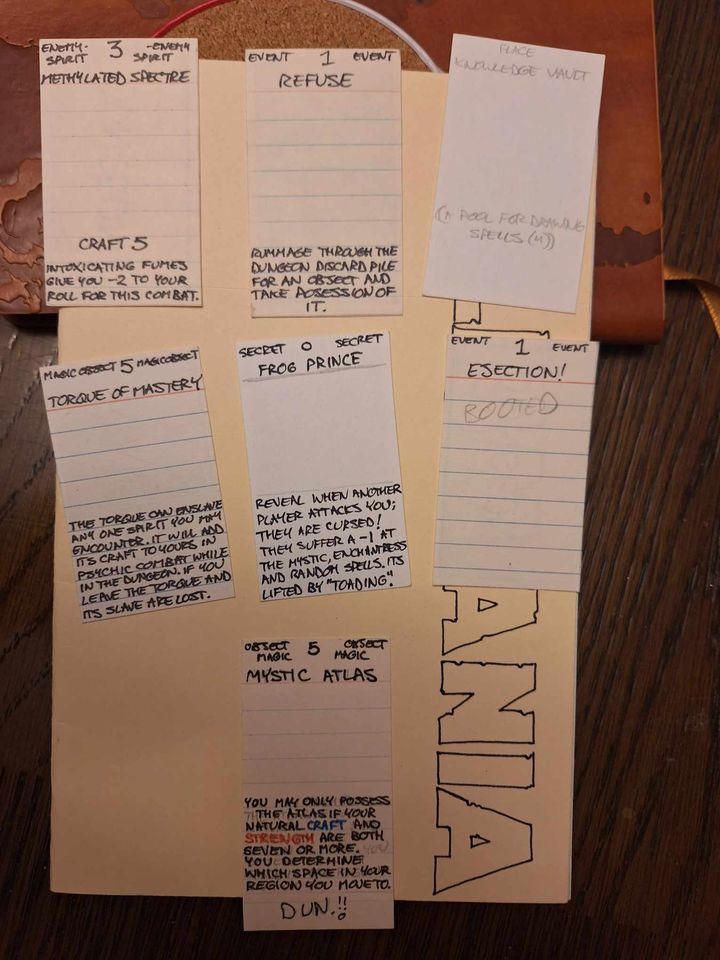 ENEMY- 3 -ENEMY
SPIRIT SPIRIT
METHYLATED SPECTRE
CRAFT 5
INTOXICATING FUMES
GIVE YOU -2 TO YOUR
ROLL FOR THIS COMBAT.
EVENT 1 EVENT
REFUSE
RUMMAGE THROUGH THE
DUNGEON DISCARD PILE
FOR AN OBJECT AND
TAKE POSESSION OF
IT.
PLACE
KNOWLEDGE VAULT
(A POOL FOR DRAWING
SPELLS (4))
MAGIC OBJECT 5 MAGIC OBJECT
TORQUE OF MASTERY
THE TORQUE CAN ENSLAVE
ANY ONE SPIRIT YOU MAY
ENCOUNTER. IT WILL ADD
ITS CRAFT TO YOURS IN
PSYCHIC COMBAT WHILE
IN THE DUNGEON. IF YOU
LEAVE THE TORQUE AND
ITS SLAVE ARE LOST.
SECRET 0 SECRET
FROG PRINCE
REVEAL WHEN ANOTHER
PLAYER ATTACKS YOU;
THEY ARE CURSED!
THEY SUFFER A -1 AT
THE MYSTIC, ENCHANTRESS
AND RANDOM SPELLS. ITS
LIFTED BY "TOADING".
EVENT 1 EVENT
EJECTION!
BOOTED
OBJECT 5 OBJECT
MAGIC MAGIC
MYSTIC ATLAS
YOU MAY ONLY POSSESS
THE ATLAS IF YOUR
NATURAL CRAFT AND
STRENGTH ARE BOTH
SEVEN OR MORE. YOU
YOU DETERMINE
WHICH SPACE IN YOUR
REGION YOU MOVE TO.
DUN.!!
ANIA